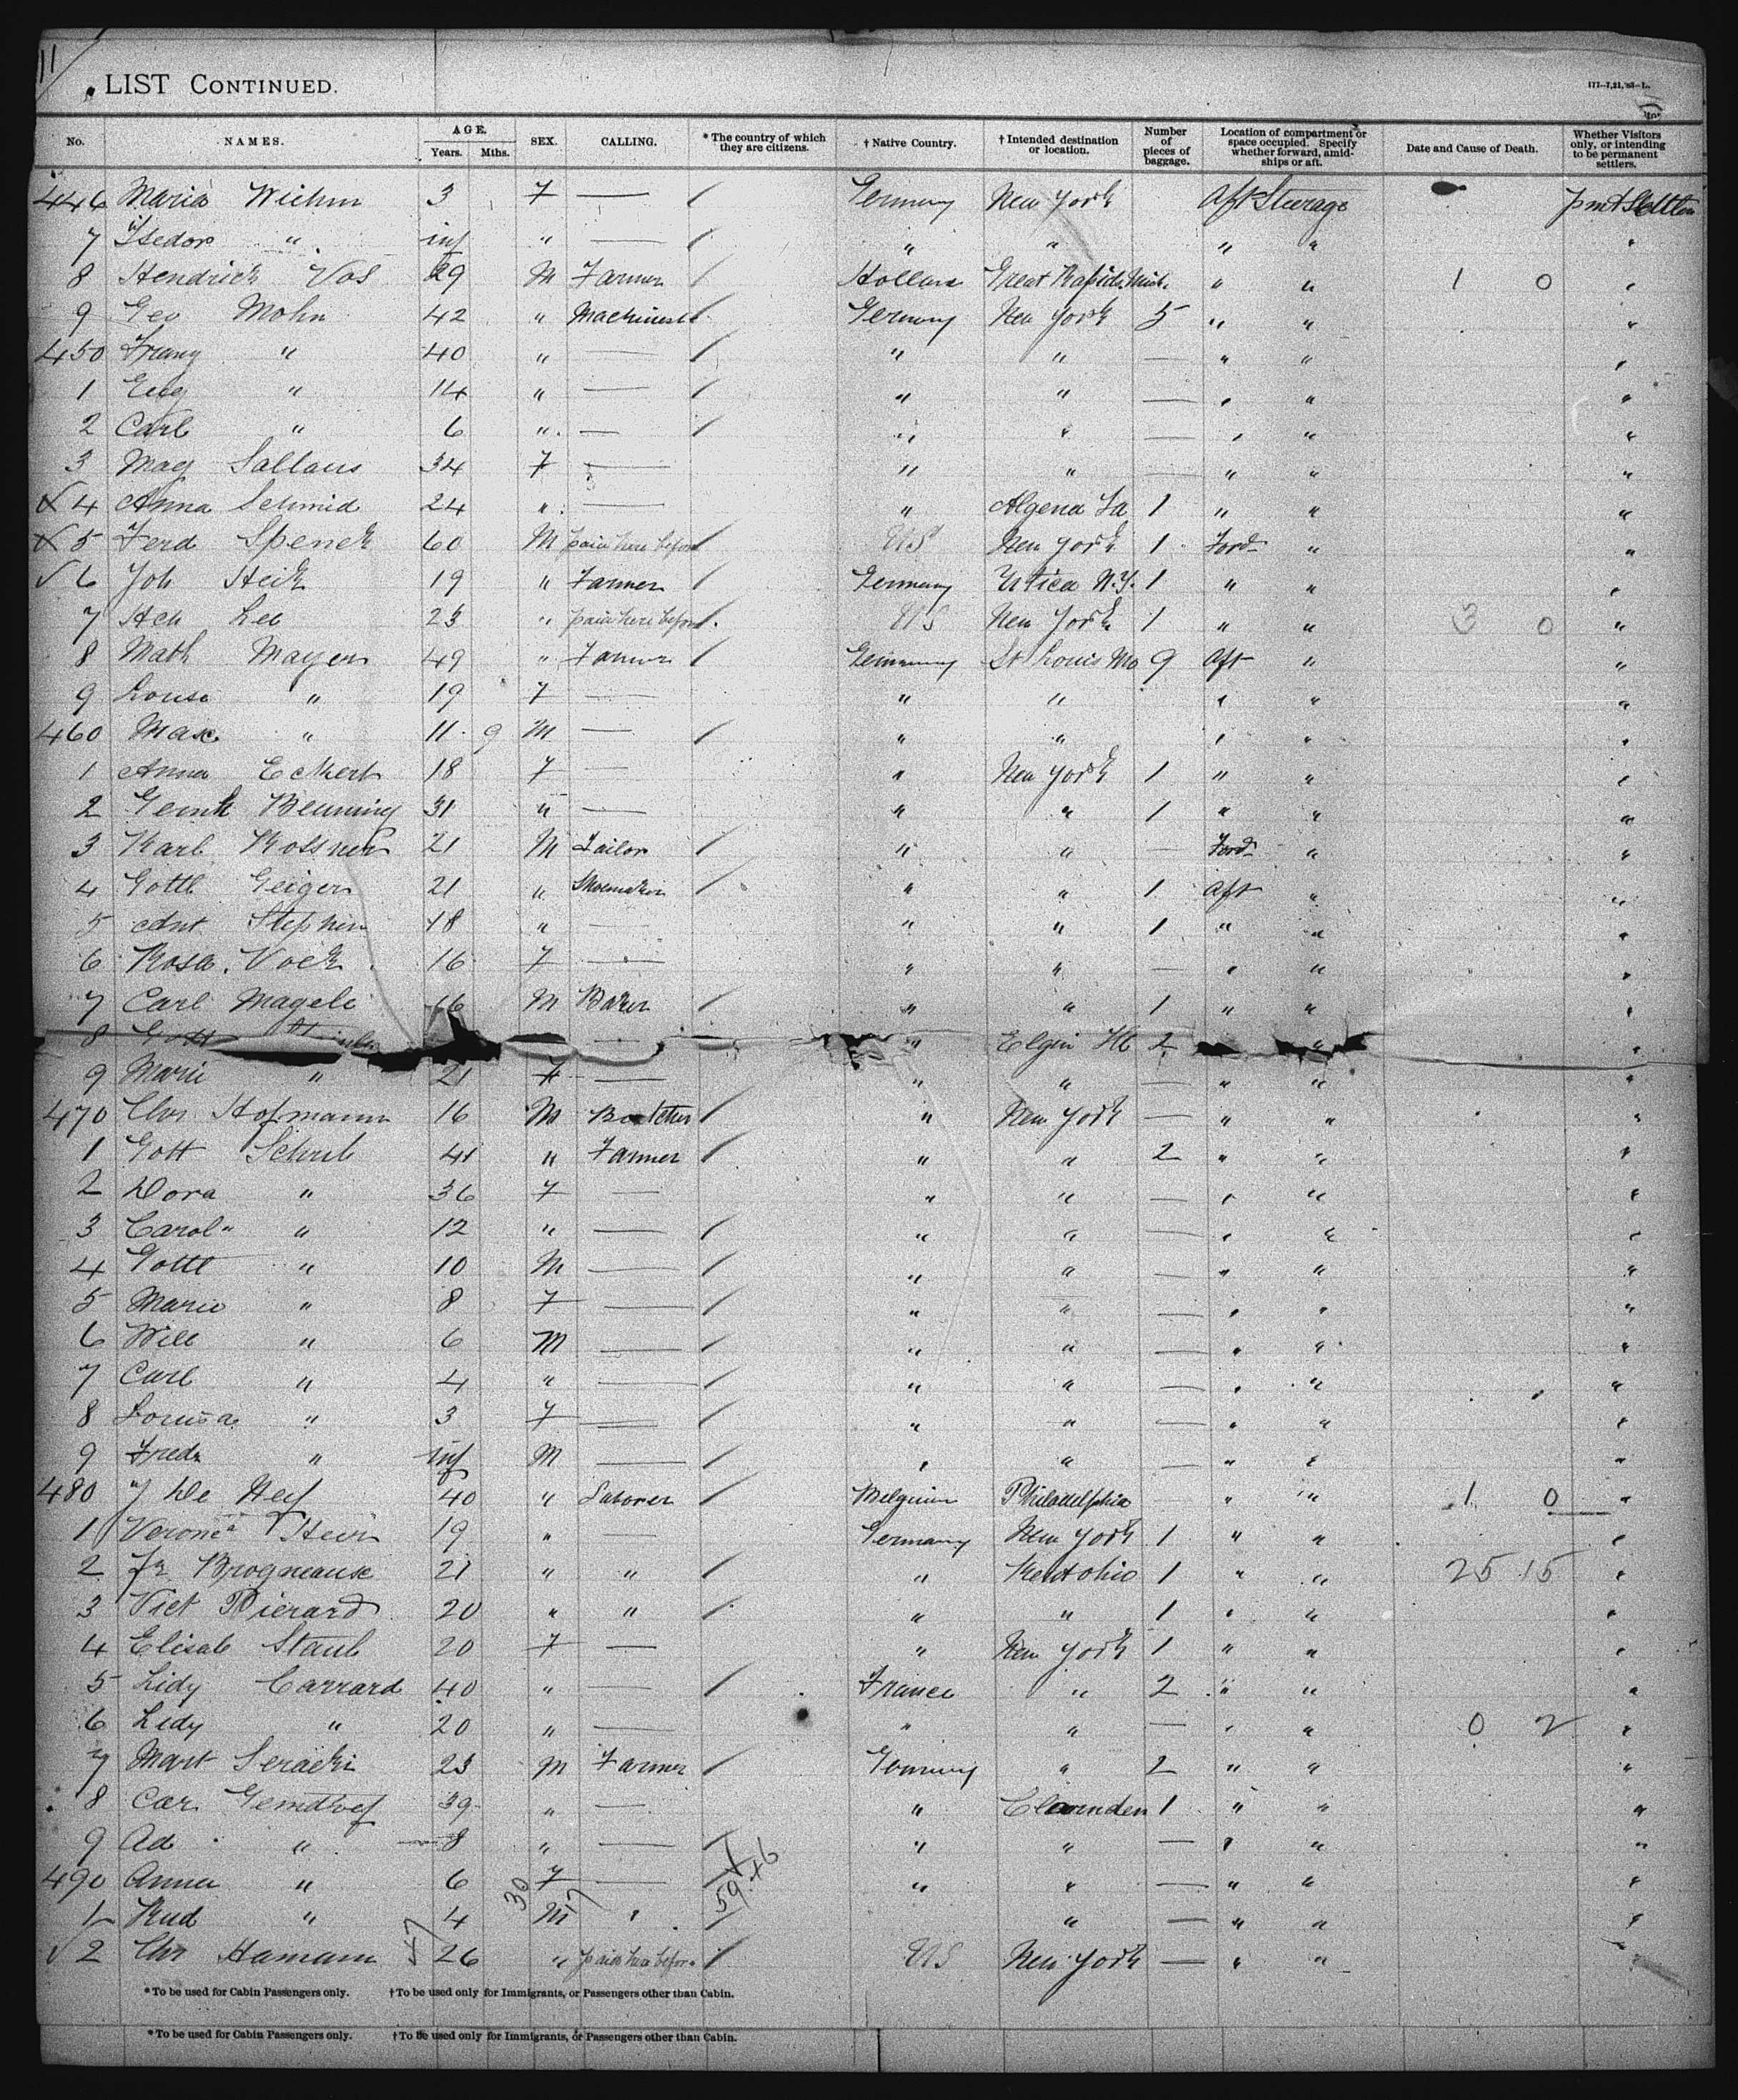 11
LIST CONTINUED.
177-7,21,'85-L.
No. NAMES. AGE. Years. Mths. SEX. CALLING. * The country of which they are citizens. † Native Country. † Intended destination or location. Number of pieces of baggage. Location of compartment or space occupied. Specify whether forward, amidships or aft. Date and Cause of Death. Whether Visitors only, or intending to be permanent settlers.
446 Maria Wichm 3 F — / Germany New York Aft Steerage
7 " inf " — / " " " " "
8 Hendrick Vos 29 M Farmer / Great Rapids Mich. " " 1 0 "
9 Geo Mohn 42 " Machinest / Germany New York 5 " " "
450 Franz " 40 " — / " " — " " "
1 Eug " 14 " — / " " — " " "
2 Carl " 6 " — / " " — " " "
3 Mag Sallaus 34 F — " " — " " "
4 Anna Schmid 24 " — " Algena Ia 1 " " "
5 Ferd Spenek 60 M paid here before / US New York 1 Ford " "
6 Joh Heik 19 " Farmer / Germany Utica N.Y. 1 " " "
7 Hch Leb 23 " paid here before / US New York 1 " " 3 0 "
8 Math Mayer 49 " Farmer / Germany St Louis Mo 9 Aft " "
9 Louse " 19 F — " " " " "
460 Max " 11 9 M — / " " " " "
1 Anna Eckert 18 F — " New York 1 " " "
2 Beuning 31 " — " " 1 " " "
3 Karl Rossner 21 M Tailor / " " — Ford " "
4 Gottl Geiger 21 " Shoemaker / " " 1 Aft " "
5 Ant Stephen 18 " — " " 1 " " "
6 Rosa Vock 16 F — " " — " " "
7 Carl Magele 16 M Baker / " " 1 " " "
8 Gott — " Elgin Ill 2 " "
9 Marie " 21 F — " " — " " "
470 Chr Hofmann 16 M Butcher / " New York — " " "
1 Gott Schub 41 " Farmer / " " 2 " " "
2 Dora " 36 F — " " — " " "
3 Carol " 12 " — / " " — " " "
4 Gottl " 10 M — / " " — " " "
5 Marie " 8 F — / " " — " " "
6 Will " 6 M — / " " — " " "
7 Carl " 4 " — / " " — " " "
8 Louisa " 3 F — / " " — " " "
9 Fredr " inf M — / " " — " " "
480 J De Heef 40 " Laborer / Belguim Philadelphia — " " 1 0 "
1 19 " — Germany New York 1 " " "
2 Fr Brogneause 21 " " / " Kent Ohio 1 " " 25 15 "
3 Vict Pierard 20 " " / " " 1 " " "
4 Elisab Staub 20 F — " New York 1 " " "
5 Lidy Carrard 40 " — / France " 2 " " "
6 Lidy " 20 " — " " — " " 0 2 "
7 Mart Seracki 23 M Farmer / Germany " 2 " " "
8 Car 39 " — " 1 " " "
9 Ad " 8 " — / " " — " " "
490 Anna " 6 F — / " " — " " "
1 Rud " 4 M " / " — " " "
2 Chr Hamann 26 " paid here before / US New York — " " "
30 17 59 46
* To be used for Cabin Passengers only. † To be used only for Immigrants, or Passengers other than Cabin.
* To be used for Cabin Passengers only. † To be used only for Immigrants, or Passengers other than Cabin.